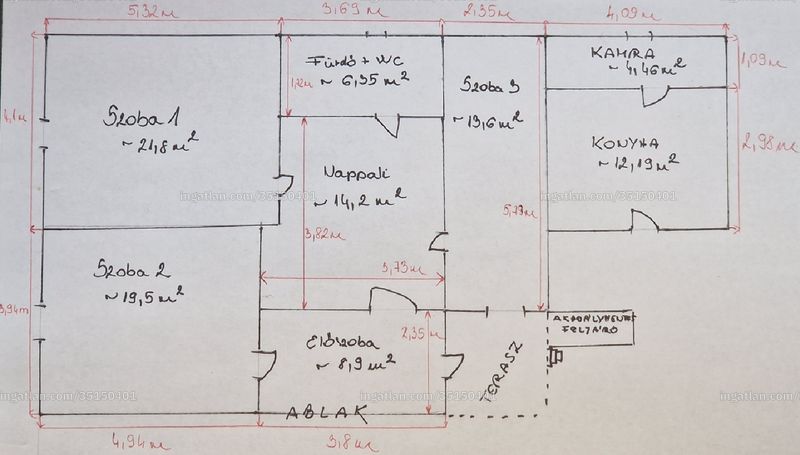 5,32m
3,69m
2,35m
4,09m
Fürdő + WC
~ 6,35 m²
1,72m
KAMRA
~ 4,46 m²
1,09m
Szoba 1
~ 21,8 m²
4,1m
Szoba 3
~ 13,6 m²
KONYHA
~ 12,19 m²
2,98m
Nappali
~ 14,2 m²
ingatlan.com/35150401
ingatlan.com/35150401
5,79m
3,82m
3,73m
Szoba 2
~ 19,5 m²
3,94m
Előszoba
~ 8,9 m²
2,35m
TERASZ
AKADÁLYMENTES
FELJÁRÓ
ingatlan.com/35150401
ingatlan.com/35150401
ABLAK
4,94m
3,8m